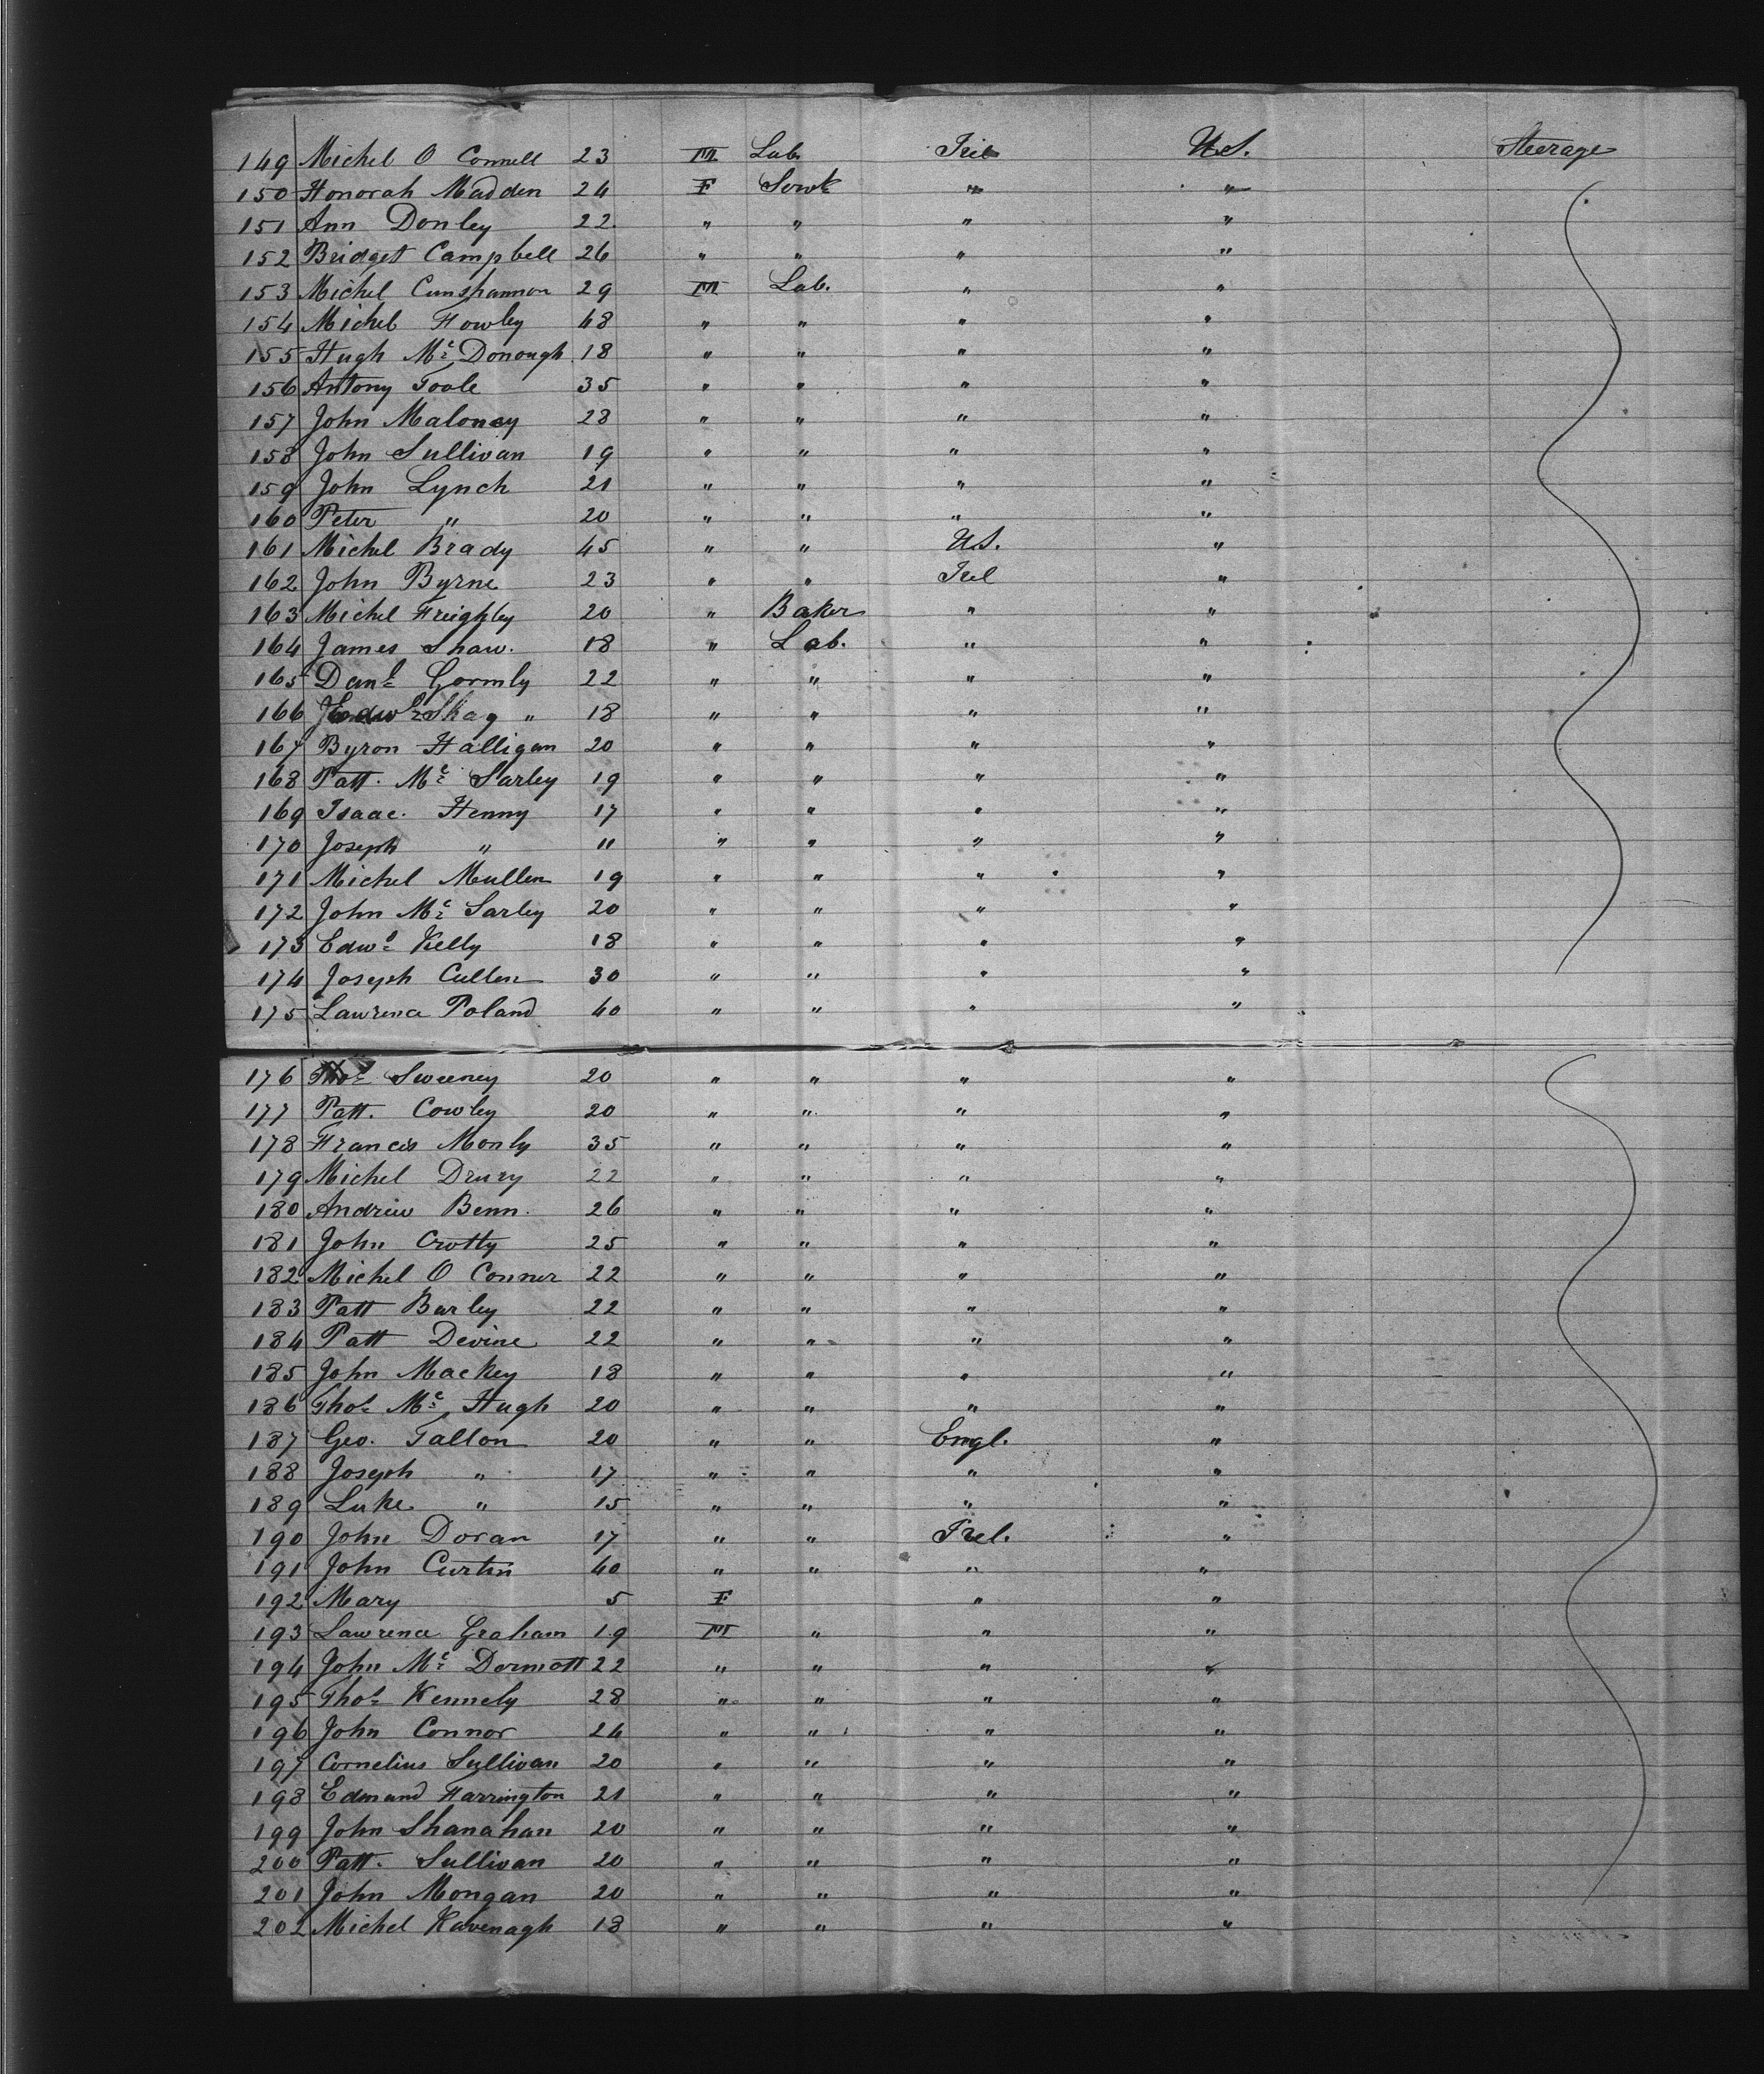 149 Michel O Connell 23 M Lab. Irel U.S. Steerage
150 Honorah Madden 24 F Servt " "
151 Ann Donley 22 " " " "
152 Bridget Campbell 26 " " " "
153 Michel 29 M Lab. " "
154 Michel Howley 48 " " " "
155 Hugh Mc Donough 18 " " " "
156 Antony Toole 35 " " " "
157 John Maloney 28 " " " "
158 John Sullivan 19 " " " "
159 John Lynch 21 " " " "
160 Peter " 20 " " " "
161 Michel Brady 45 " " U.S. "
162 John Byrne 23 " " Irel "
163 Michel 20 " Baker " "
164 James Shaw. 18 " Lab. " "
165 Danl Gormly 22 " " " "
166 " 18 " " " "
167 Byron Halligan 20 " " " "
168 Patt. Mc Sarley 19 " " " "
169 Isaac. Henny 17 " " " "
170 Joseph " 11 " " " "
171 Michel Mullen 19 " " " "
172 John Mc Sarley 20 " " " "
173 Edwd Kelly 18 " " " "
174 Joseph Cullen 30 " " " "
175 Lawrence Poland 40 " " " "
176 Thos Sweeney 20 " " " "
177 Patt. Cowley 20 " " " "
178 Francis Monly 35 " " " "
179 Michel Drury 22 " " " "
180 Andrew Benn. 26 " " " "
181 John Crotty 25 " " " "
182 Michel O Conner 22 " " " "
183 Patt Burley 22 " " " "
184 Patt Devine 22 " " " "
185 John Mackey 18 " " " "
186 Thos Mc Hugh 20 " " " "
187 Geo. Tallon 20 " " Engl. "
188 Joseph " 17 " " " "
189 Luke " 15 " " " "
190 John Doran 17 " " Irel. "
191 John Curtin 40 " " " "
192 Mary 5 F " "
193 Lawrence Graham 19 M " " "
194 John Mc Dermott 22 " " " "
195 Thos Kennely 28 " " " "
196 John Connor 24 " " " "
197 Cornelius Sullivan 20 " " " "
198 Edmund Harrington 21 " " " "
199 John Shanahan 20 " " " "
200 Patt. Sullivan 20 " " " "
201 John Mongan 20 " " " "
202 Michel Kavenagh 18 " " " "